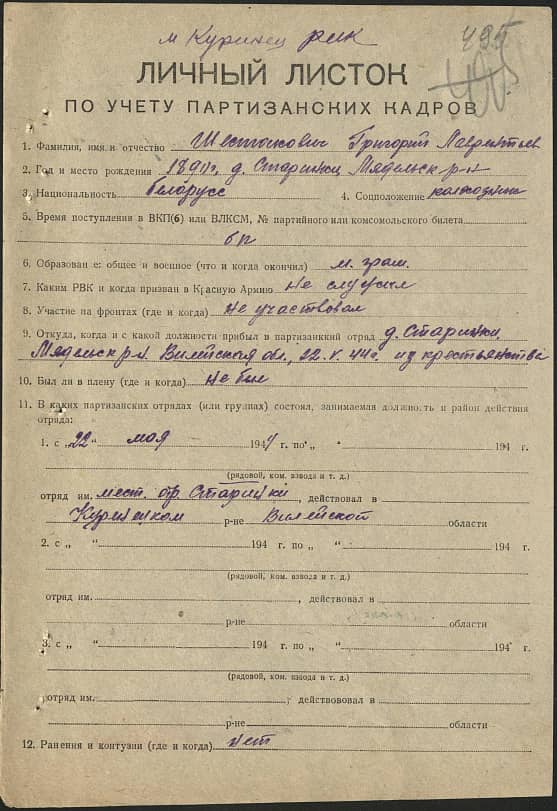 м Куринец рик
495
ЛИЧНЫЙ ЛИСТОК
ПО УЧЕТУ ПАРТИЗАНСКИХ КАДРОВ
1. Фамилия, имя и отчество Шестакович Григорий Лаврентьев
2. Год и место рождения 1891 г, д. Старинки Мядельск р-н
3. Национальность белорусс 4. Соцположение колхозник
5. Время поступления в ВКП(б) или ВЛКСМ, № партийного или комсомольского билета
б/п
6. Образование: общее и военное (что и когда окончил) м. грам.
7. Каким РВК и когда призван в Красную Армию не служил
8. Участие на фронтах (где и когда) не участвовал
9. Откуда, когда и с какой должности прибыл в партизанский отряд д. Старинки
Мядельск р-н. Вилейской обл., 22.V.44 г. из крестьянства
10. Был ли в плену (где и когда) не был
11. В каких партизанских отрядах (или группах) состоял, занимаемая должность и район действия
отряда:
1. с „22" мая 1944 г. по „ " 194 г.
(рядовой, ком. взвода и т. д.)
отряд им. мест. отр. Старинки, действовал в
Куринецком р-не Вилейской области
2. с „ " 194 г. по „ " 194 г.
(рядовой, ком. взвода и т. д.)
отряд им. , действовал в
р-не области
3. с „ " 194 г. по „ " 194 г.
(рядовой, ком. взвода и т. д.)
отряд им. , действововал в
р-не области
12. Ранения и контузии (где и когда) нет